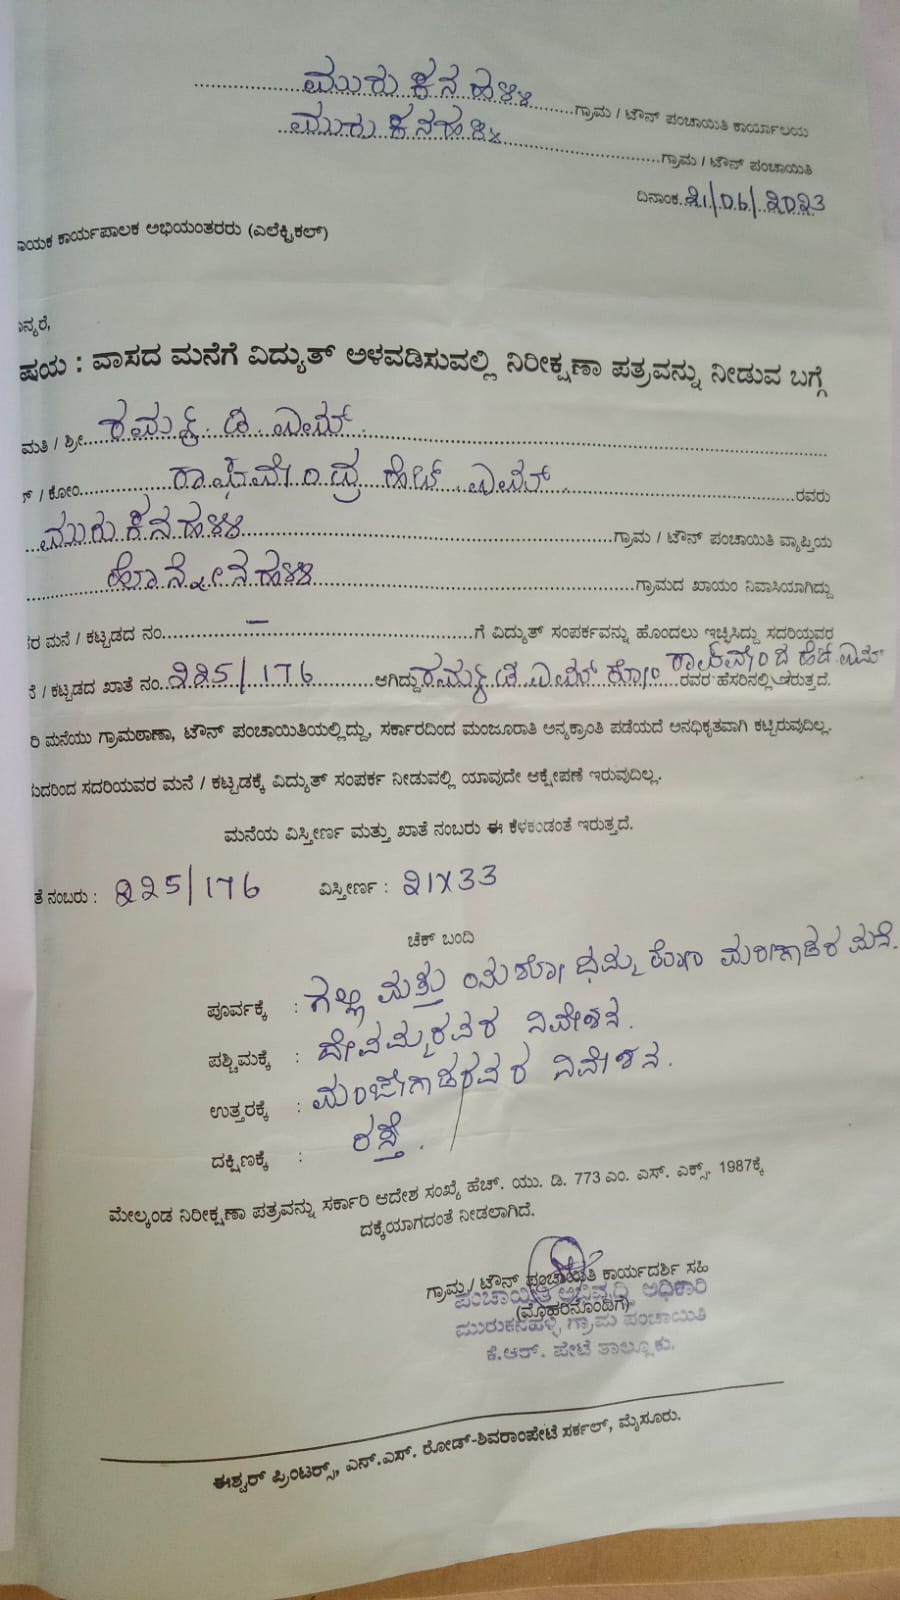 ಮುರುಕನಹಳ್ಳಿ ಗ್ರಾಮ / ಟೌನ್ ಪಂಚಾಯಿತಿ ಕಾರ್ಯಾಲಯ
ಮುರುಕನಹಳ್ಳಿ ಗ್ರಾಮ / ಟೌನ್ ಪಂಚಾಯಿತಿ
ದಿನಾಂಕ 21/06/2023
ಾಯಕ ಕಾರ್ಯಪಾಲಕ ಅಭಿಯಂತರರು (ಎಲೆಕ್ಟ್ರಿಕಲ್)
ಾನ್ಯರೆ,
ಷಯ : ವಾಸದ ಮನೆಗೆ ವಿದ್ಯುತ್ ಅಳವಡಿಸುವಲ್ಲಿ ನಿರೀಕ್ಷಣಾ ಪತ್ರವನ್ನು ನೀಡುವ ಬಗ್ಗೆ
ಮತಿ / ಶ್ರೀ ರಮ್ಯ ಡಿ ಎಮ್
/ ಕೋಂ ರಾಘವೇಂದ್ರ ಹೆಚ್ ಎಮ್ ರವರು
ಮುರುಕನಹಳ್ಳಿ ಗ್ರಾಮ / ಟೌನ್ ಪಂಚಾಯಿತಿ ವ್ಯಾಪ್ತಿಯ
ಹೊನ್ನೇನಹಳ್ಳಿ ಗ್ರಾಮದ ಖಾಯಂ ನಿವಾಸಿಯಾಗಿದ್ದು
ರ ಮನೆ / ಕಟ್ಟಡದ ನಂ. — ಗೆ ವಿದ್ಯುತ್ ಸಂಪರ್ಕವನ್ನು ಹೊಂದಲು ಇಚ್ಛಿಸಿದ್ದು ಸದರಿಯವರ
/ ಕಟ್ಟಡದ ಖಾತೆ ನಂ. 225/176 ಆಗಿದ್ದು ರಮ್ಯ ಡಿ ಎಮ್ ಕೋಂ ರಾಘವೇಂದ್ರ ಹೆಚ್ ಎಮ್ ರವರ ಹೆಸರಿನಲ್ಲಿ ಇರುತ್ತದೆ.
ರಿ ಮನೆಯು ಗ್ರಾಮಠಾಣಾ, ಟೌನ್ ಪಂಚಾಯಿತಿಯಲ್ಲಿದ್ದು, ಸರ್ಕಾರದಿಂದ ಮಂಜೂರಾತಿ ಅನ್ಯಕ್ರಾಂತಿ ಪಡೆಯದೆ ಅನಧಿಕೃತವಾಗಿ ಕಟ್ಟಿರುವುದಿಲ್ಲ.
ುದರಿಂದ ಸದರಿಯವರ ಮನೆ / ಕಟ್ಟಡಕ್ಕೆ ವಿದ್ಯುತ್ ಸಂಪರ್ಕ ನೀಡುವಲ್ಲಿ ಯಾವುದೇ ಆಕ್ಷೇಪಣೆ ಇರುವುದಿಲ್ಲ.
ಮನೆಯ ವಿಸ್ತೀರ್ಣ ಮತ್ತು ಖಾತೆ ನಂಬರು ಈ ಕೆಳಕಂಡಂತೆ ಇರುತ್ತದೆ.
ತೆ ನಂಬರು : 225/176 ವಿಸ್ತೀರ್ಣ : 21X33
ಚೆಕ್ ಬಂದಿ
ಪೂರ್ವಕ್ಕೆ : ಗಲ್ಲಿ ಮತ್ತು ಕೋಂ ಮನೆ.
ಪಶ್ಚಿಮಕ್ಕೆ : ದೇವಮ್ಮರವರ ನಿವೇಶನ.
ಉತ್ತರಕ್ಕೆ : ಮಂಚೇಗೌಡರವರ ನಿವೇಶನ.
ದಕ್ಷಿಣಕ್ಕೆ : ರಸ್ತೆ.
ಮೇಲ್ಕಂಡ ನಿರೀಕ್ಷಣಾ ಪತ್ರವನ್ನು ಸರ್ಕಾರಿ ಆದೇಶ ಸಂಖ್ಯೆ ಹೆಚ್. ಯು. ಡಿ. 773 ಎಂ. ಎಸ್. ಎಕ್ಸ್. 1987ಕ್ಕೆ
ದಕ್ಕೆಯಾಗದಂತೆ ನೀಡಲಾಗಿದೆ.
ಗ್ರಾಮ / ಟೌನ್ ಪಂಚಾಯಿತಿ ಕಾರ್ಯದರ್ಶಿ ಸಹಿ
ಪಂಚಾಯಿತಿ ಅಭಿವೃದ್ಧಿ ಅಧಿಕಾರಿ
(ಮೊಹರಿನೊಂದಿಗೆ)
ಮುರುಕನಹಳ್ಳಿ ಗ್ರಾಮ ಪಂಚಾಯಿತಿ
ಕೆ.ಆರ್. ಪೇಟೆ ತಾಲ್ಲೂಕು.
ಈಶ್ವರ್ ಪ್ರಿಂಟರ್ಸ್, ಎನ್.ಎಸ್. ರೋಡ್-ಶಿವರಾಂಪೇಟೆ ಸರ್ಕಲ್, ಮೈಸೂರು.